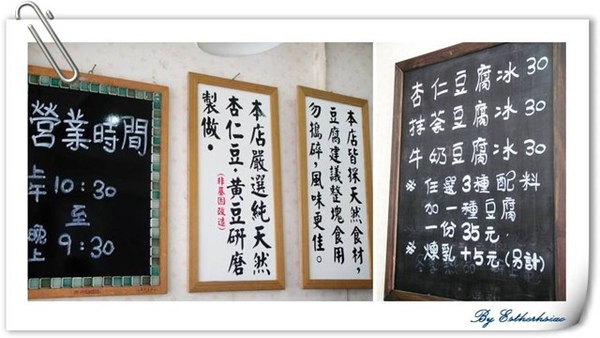 營業時間
上午 10:30
至
晚上 9:30
本店嚴選純天然
杏仁豆·黃豆研磨
(非基因改造)
製做。
本店皆採天然食材,
豆腐建議整塊食用
勿搗碎,風味更佳。
杏仁豆腐冰30
抹茶豆腐冰30
牛奶豆腐冰30
※任選3種配料
加一種豆腐
一份35元
※煉乳+5元(另計)
By Estherhsiao